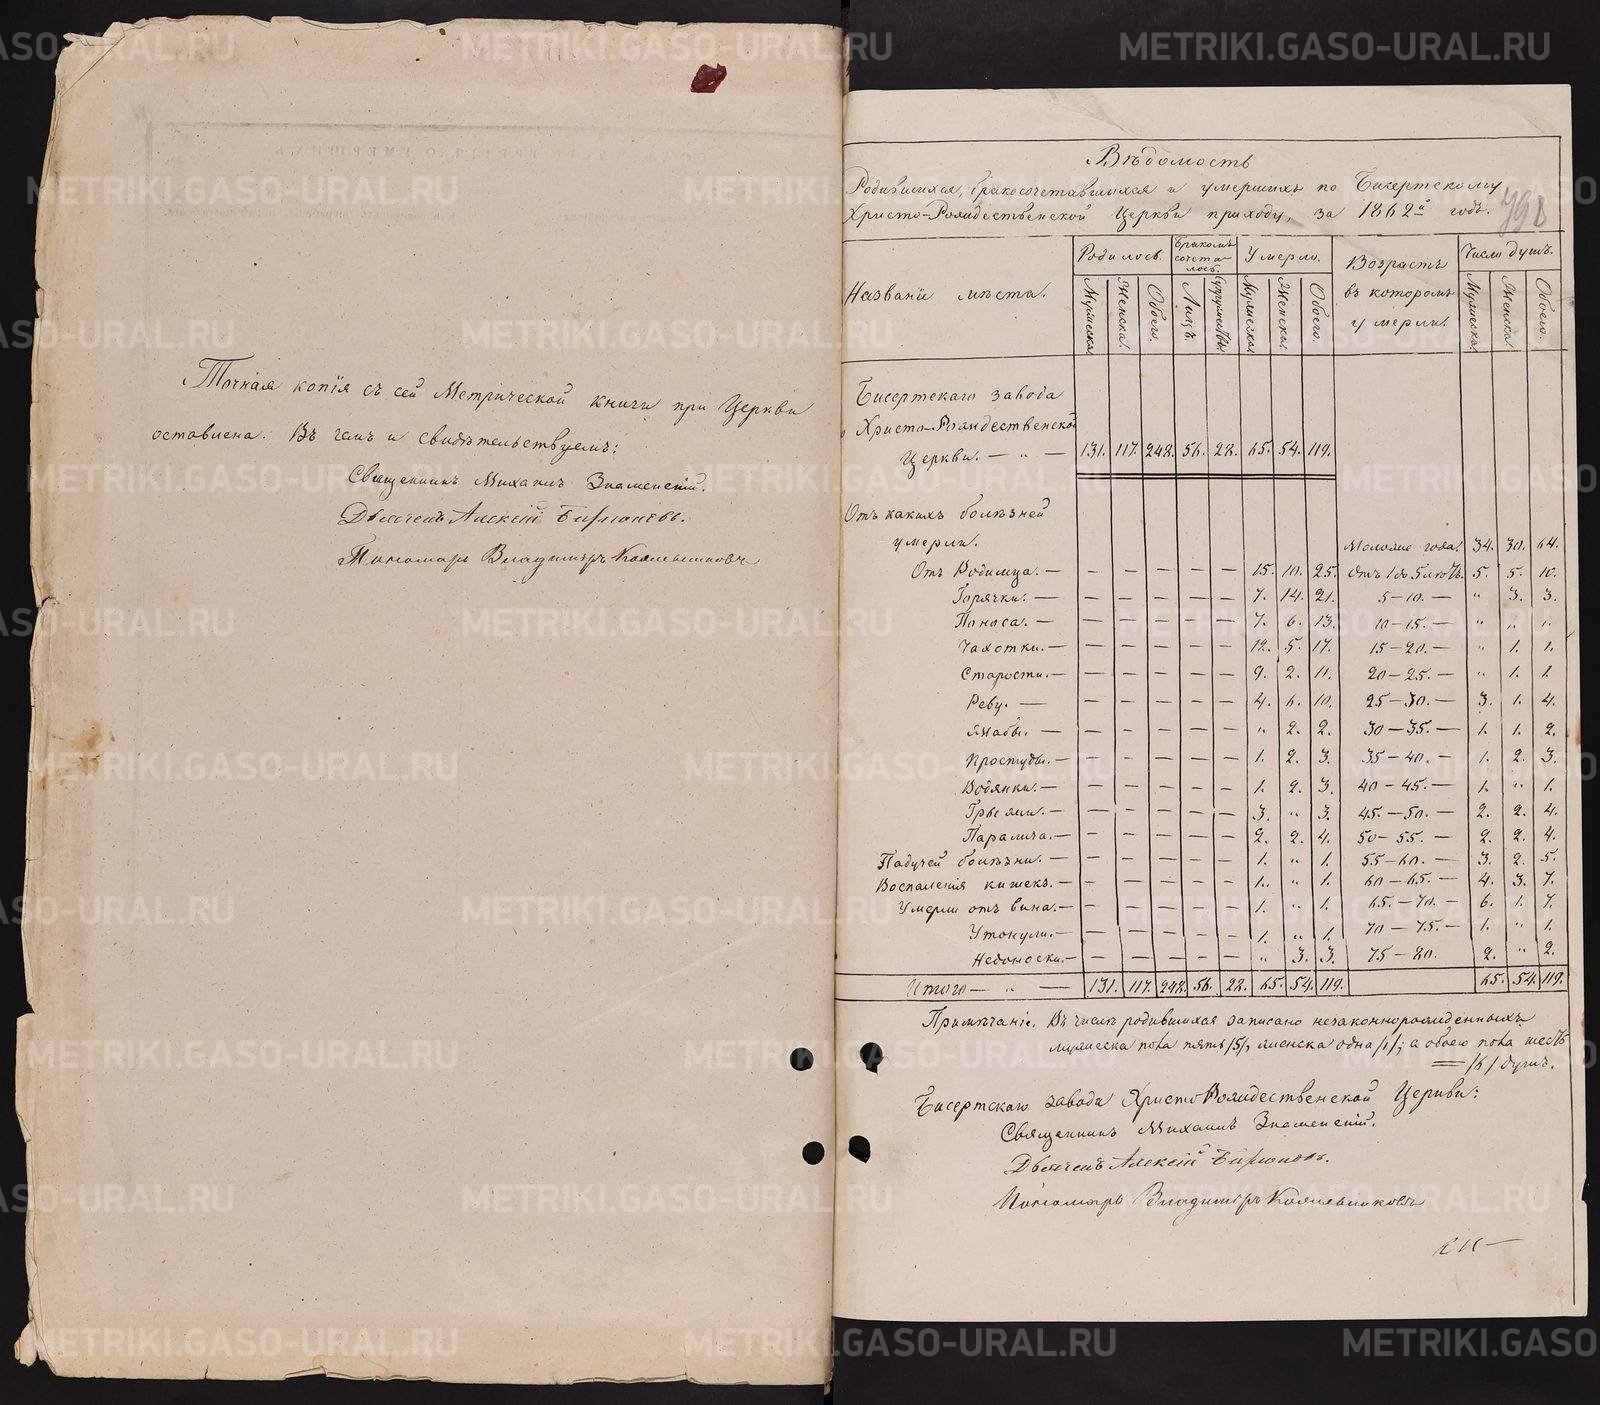 Точная копія съ сей Метрической книги при Церкви
оставлена. Въ чемъ и свидѣтельствуемъ:
Священникъ Михаилъ Знаменскій.
Дьячекъ Алексій Бирюковъ.
Пономарь Владиміръ
Вѣдомость
Родившихся, бракосочетавшихся и умершихъ по Бисертскому
Христо-Рождественской Церкви приходу, за 1862й годъ.
Названіе мѣста.
Родилось. Бракомъ сочеталось. Умерло. Возрастъ въ которомъ умерли. Число душъ.
Мужеска. Женска. Обоего. Лицъ. Супружествъ. Мужеска. Женска. Обоего. Мужеска. Женска. Обоего.
Бисертскаго завода
Христо-Рождественской
Церкви. — „ — 131. 117. 248. 56. 28. 65. 54. 119.
Отъ какихъ болѣзней
умерли. Моложе года. 34. 30. 64.
Отъ Родимца. — — — — — — 15. 10. 25. Отъ 1 до 5 лѣтъ. 5. 5. 10.
Горячки. — — — — — — 7. 14. 21. 5—10. — „ 3. 3.
Поноса. — — — — — — 7. 6. 13. 10—15. — „ 1. 1.
Чахотки. — — — — — — 12. 5. 17. 15—20. — „ 1. 1.
Старости. — — — — — — 9. 2. 11. 20—25. — „ 1. 1.
Реву. — — — — — — 4. 6. 10. 25—30. — 3. 1. 4.
Жабы. — — — — — — „ 2. 2. 30—35. — 1. 1. 2.
Простуды. — — — — — — 1. 2. 3. 35—40. — 1. 2. 3.
Водянки. — — — — — — 1. 2. 3. 40—45. — 1. „ 1.
Грыжи. — — — — — — 3. „ 3. 45.—50. — 2. 2. 4.
Паралича. — — — — — — 2. 2. 4. 50—55. — 2. 2. 4.
Падучей болѣзни. — — — — — — 1. „ 1. 55—60. — 3. 2. 5.
Воспаленія кишекъ. — — — — — — 1. „ 1. 60—65. — 4. 3. 7.
Умерли отъ вина. — — — — — — 1. „ 1. 65.—70. — 6. 1. 7.
Утонули. — — — — — — 1. „ 1. 70—75. — 1. „ 1.
Недоноски. — — — — — — „ 3. 3. 75—80. 2. „ 2.
Итого — „ — 131. 117. 248. 56. 28. 65. 54. 119. 65. 54. 119.
Примѣчаніе. Въ числѣ родившихся записано незаконнорожденныхъ
мужеска пола пять /5/, женска одна /1/; а обоего пола шесть
/6/ душъ.
Бисертскаго завода ХристоРождественской Церкви:
Священникъ Михаилъ Знаменскій.
Дьячекъ Алексій Бирюковъ.
Пономарь Владиміръ
METRIKI.GASO-URAL.RU